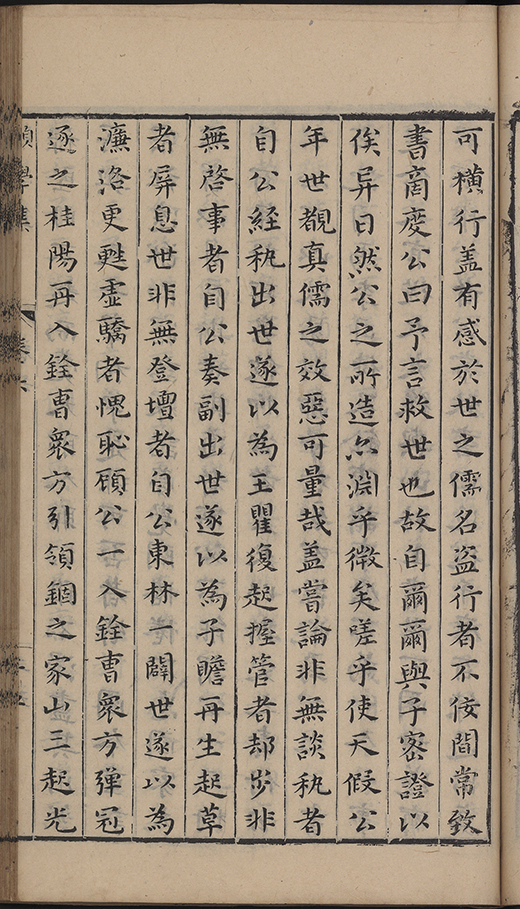 可橫行盖有感於世之儒名盜行者不佞間常致
書商度公曰予言救世也故自爾爾與子密證以
俟异日然公之所造尒淵乎微矣嗟乎使天假公
年世覩真儒之效惡可量哉盖嘗論非無談秇者
自公經秇出世遂以為王瞿復起握管者却步非
無啓事者自公奏副出世遂以為子瞻再生起草
者屏息世非無登壇者自公東林一闢世遂以為
濂洛更甦虛驕者愧恥頋公一入銓曹衆方彈冠
逐之桂陽再入銓曹衆方引領錮之家山三起光
願學集